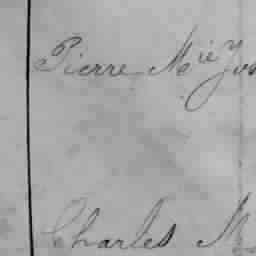 Pierre Mie
Charles